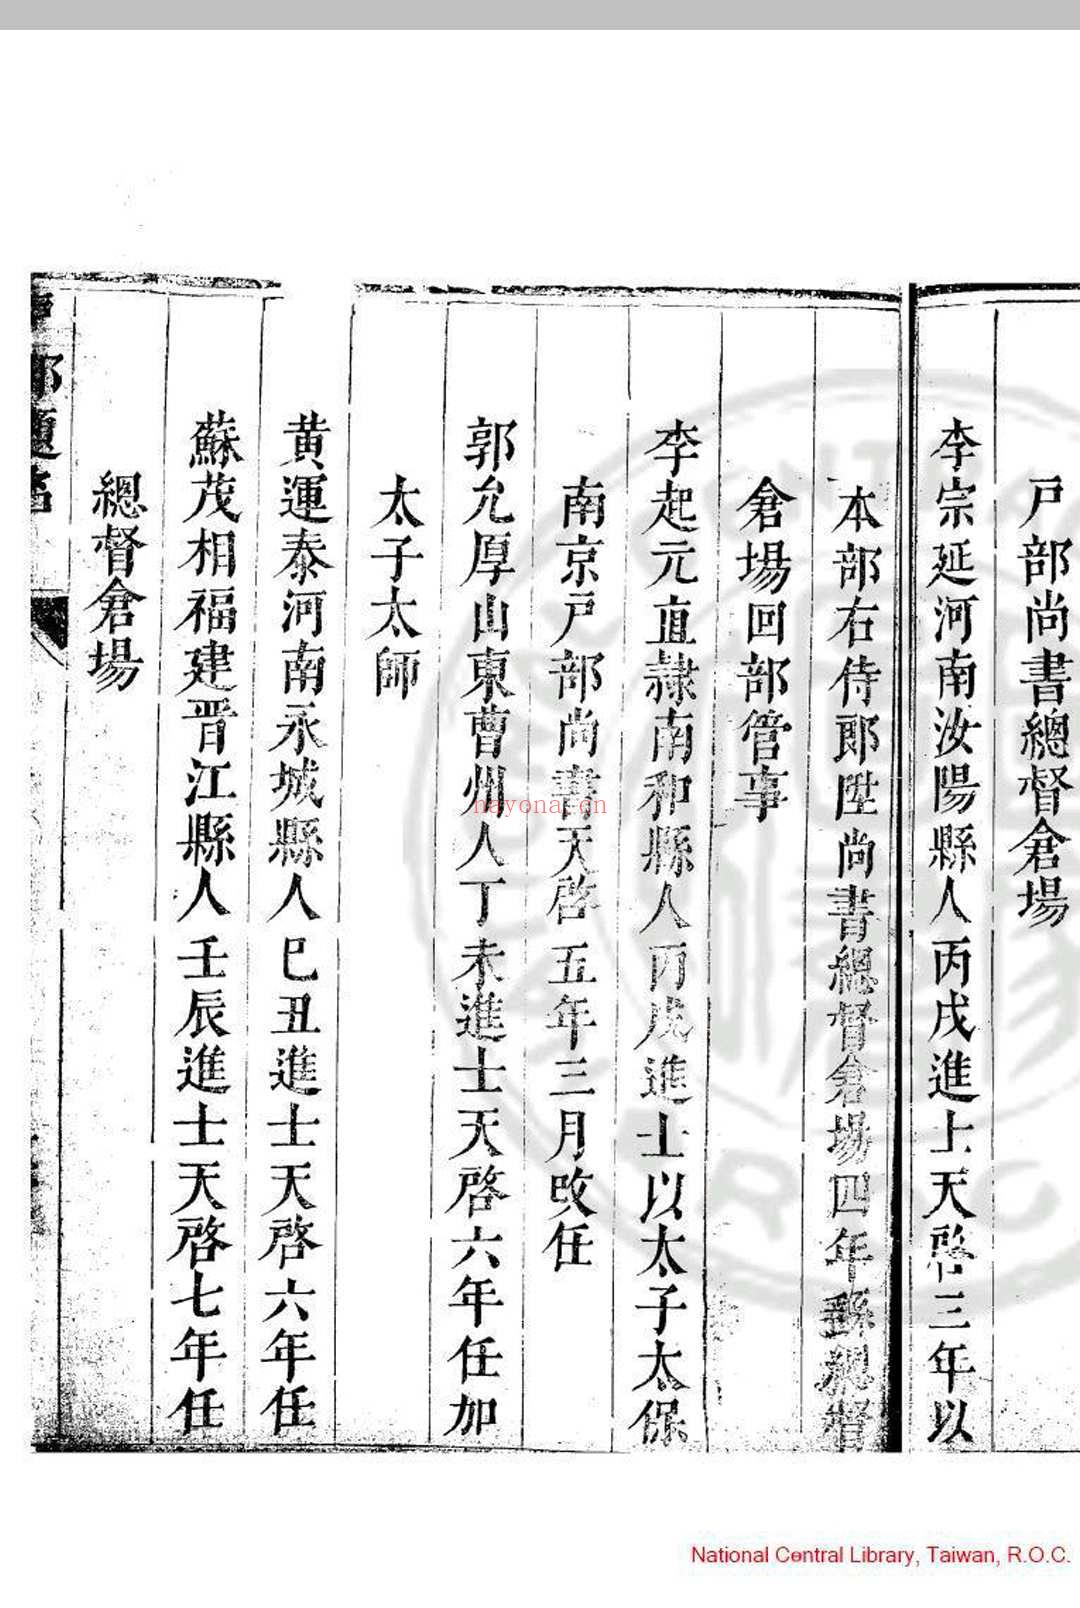 戸部尚書總督倉場
李宗延河南汝陽縣人丙戌進士天啓三年以
本部右侍郎陞尚書總督倉場四年繇總督
倉場回部管事
李起元直隸南和縣人丙戌進士以太子太保
南京戸部尚書天啓五年三月改任
郭允厚山東曹州人丁未進士天啓六年任加
太子太師
黄運泰河南永城縣人巳丑進士天啓六年任
蘇茂相福建晋江縣人壬辰進士天啓七年任
總督倉場
部題
nayona.cn
National Central Library, Taiwan, R.O.C.